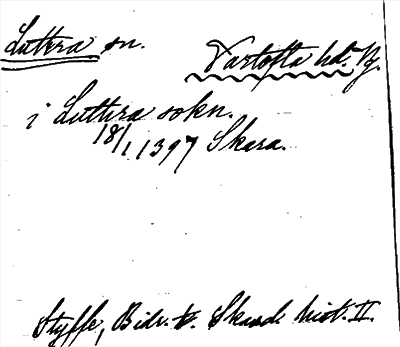 Luttra sn.
Vartofta hd. Vg.
i Luttra sokn.
18/1 1397 Skara.
Styffe, Bidr. t. Skand. hist. II.